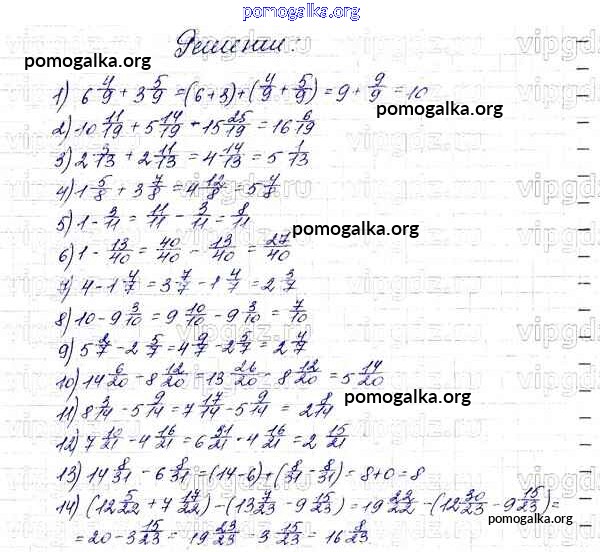 pomogalka.org
Решении:
pomogalka.org
1) 6 4/9 + 3 5/9 = (6+3) + (4/9 + 5/9) = 9 + 9/9 = 10
pomogalka.org
2) 10 11/19 + 5 14/19 = 15 25/19 = 16 6/19
3) 2 3/13 + 2 11/13 = 4 14/13 = 5 1/13
4) 1 5/8 + 3 7/8 = 4 12/8 = 5 4/8
5) 1 - 3/11 = 11/11 - 3/11 = 8/11
pomogalka.org
6) 1 - 13/40 = 40/40 - 13/40 = 27/40
7) 4 - 1 4/7 = 3 7/7 - 1 4/7 = 2 3/7
8) 10 - 9 3/10 = 9 10/10 - 9 3/10 = 7/10
9) 5 2/7 - 2 5/7 = 4 9/7 - 2 5/7 = 2 4/7
10) 14 6/20 - 8 12/20 = 13 26/20 - 8 12/20 = 5 14/20
pomogalka.org
11) 8 3/14 - 5 9/14 = 7 17/14 - 5 9/14 = 2 8/14
12) 7 10/21 - 4 16/21 = 6 31/21 - 4 16/21 = 2 15/21
13) 14 8/31 - 6 8/31 = (14-6) + (8/31 - 8/31) = 8 + 0 = 8
14) (12 5/22 + 7 17/22) - (13 7/23 - 9 15/23) = 19 22/22 - (12 30/23 - 9 15/23) =
pomogalka.org
= 20 - 3 15/23 = 19 23/23 - 3 15/23 = 16 8/23
vipgdz.ru